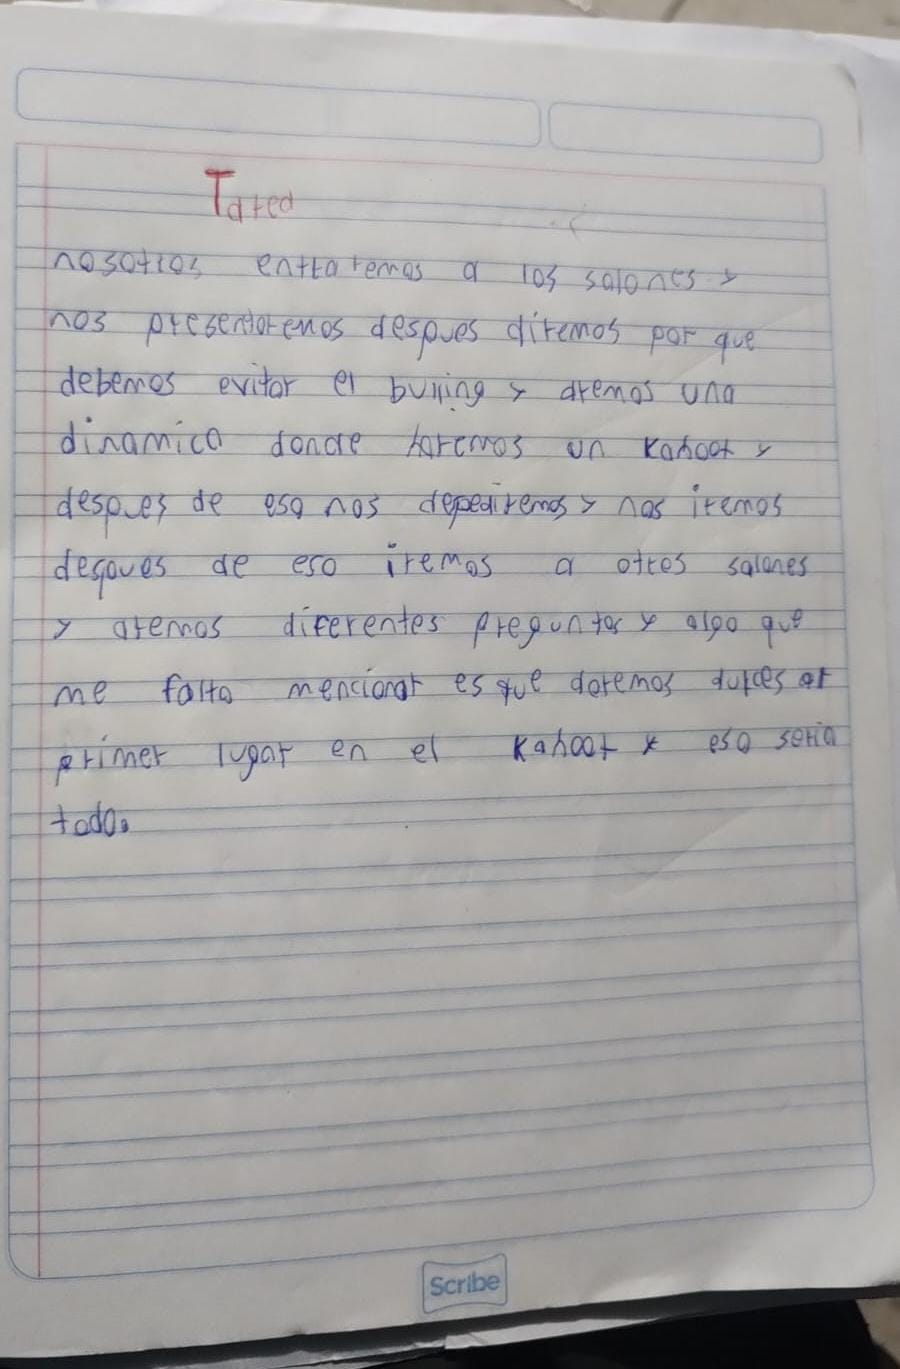 Tarea
nosotros entraremos a los salones y
nos presentaremos despues diremos por que
debemos evitar el bulling y aremos una
dinamica donde haremos un kahoot y
despues de eso nos depediremos y nos iremos
despues de eso iremos a otros salones
y aremos diferentes preguntas y algo que
me falto mencionar es que daremos dulces al
primer lugar en el kahoot y eso seria
todo.
Scribe